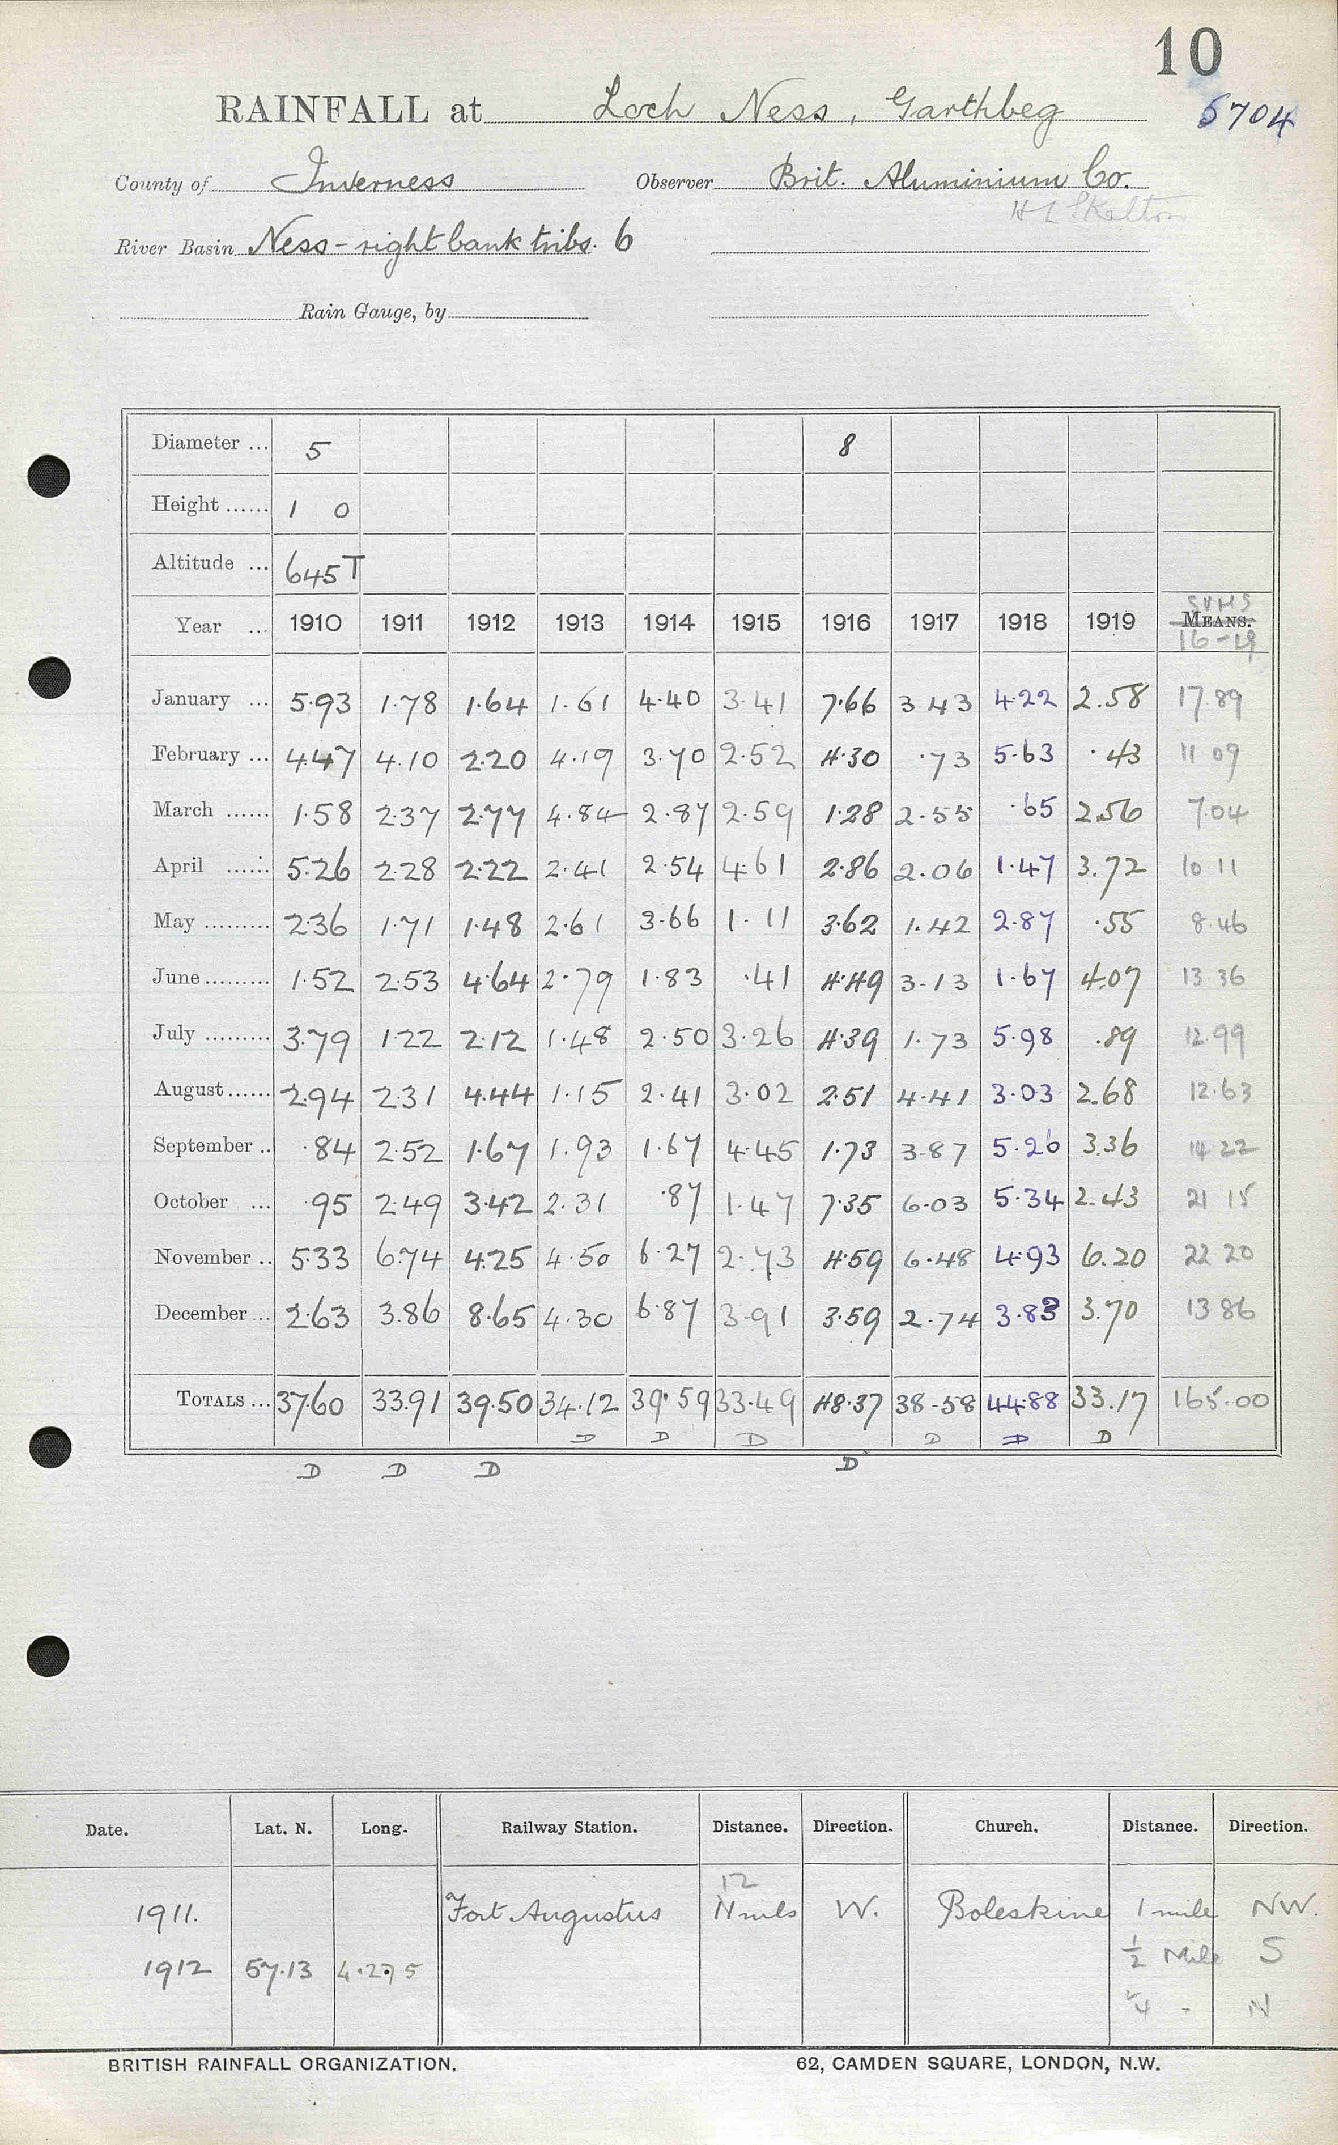 10
RAINFALL at Loch Ness, Garthbeg 5704
County of Inverness Observer Brit. Aluminium Co.
H L Skelton
River Basin Ness - right bank tribs. 6
Rain Gauge, by
Diameter ... 5 8
Height ...... 1 0
Altitude ... 645 T
SUMS
Year ... 1910 1911 1912 1913 1914 1915 1916 1917 1918 1919 MEANS.
16-19
January ... 5.93 1.78 1.64 1.61 4.40 3.41 7.66 3.43 4.22 2.58 17.89
February ... 4.47 4.10 2.20 4.19 3.70 2.52 4.30 .73 5.63 .43 11 09
March ...... 1.58 2.37 2.77 4.84 2.87 2.59 1.28 2.55 .65 2.56 7.04
April ...... 5.26 2.28 2.22 2.41 2.54 4.61 2.86 2.06 1.47 3.72 10 11
May ......... 2.36 1.71 1.48 2.61 3.66 1.11 3.62 1.42 2.87 .55 8.46
June ......... 1.52 2.53 4.64 2.79 1.83 .41 4.49 3.13 1.67 4.07 13 36
July ......... 3.79 1.22 2.12 1.48 2.50 3.26 4.39 1.73 5.98 .89 12.99
August ...... 2.94 2.31 4.44 1.15 2.41 3.02 2.51 4.41 3.03 2.68 12.63
September .. .84 2.52 1.67 1.93 1.67 4.45 1.73 3.87 5.26 3.36 14 22
October ... .95 2.49 3.42 2.31 .87 1.47 7.35 6.03 5.34 2.43 21 15
November .. 5.33 6.74 4.25 4.50 6.27 2.73 4.59 6.48 4.93 6.20 22 20
December ... 2.63 3.86 8.65 4.30 6.87 3.91 3.59 2.74 3.83 3.70 13 86
TOTALS ... 37.60 33.91 39.50 34.12 39.59 33.49 48.37 38.58 44.88 33.17 165.00
D D D D D D
D D D D
Date. Lat. N. Long. Railway Station. Distance. Direction. Church. Distance. Direction.
12
1911. Fort Augustus 11 mls W. Boleskine 1 mile NW.
1912 57.13 4.27 5 ½ Mile S
¼ - N
BRITISH RAINFALL ORGANIZATION. 62, CAMDEN SQUARE, LONDON, N.W.